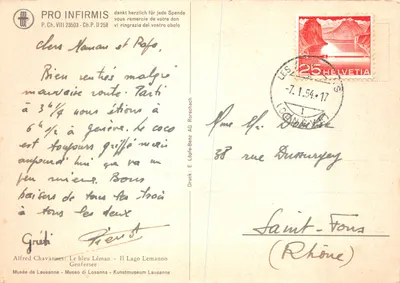 PRO INFIRMIS
P. Ch. VIII 23503 - Ch P. II 258
dankt herzlich für jede Spende
vous remercie de votre don
vi ringrazia del vostro obolo
Chers Maman et Papa.
Bien rentrés malgré
mauvaise route. Parti
à 3 h 1/4 nous étions à
6 h 1/2 à Genève. Le coco
est toujours griffé mais
aujourd'hui ça va un
peu mieux. Bons
baisers de tous les trois
à tous les deux
Pierrot
Alfred Chavannes: Le bleu Léman - Il Lago Lemanno
Genfersee
Musée de Lausanne - Museo di Losanna - Kunstmuseum Lausanne
Druck: E. Löpfe-Benz AG Rorschach
25 HELVETIA
-7. 1. 54 - 17
(GENÈVE)
Mme Mr
38 rue
Saint-Fons
(Rhône)